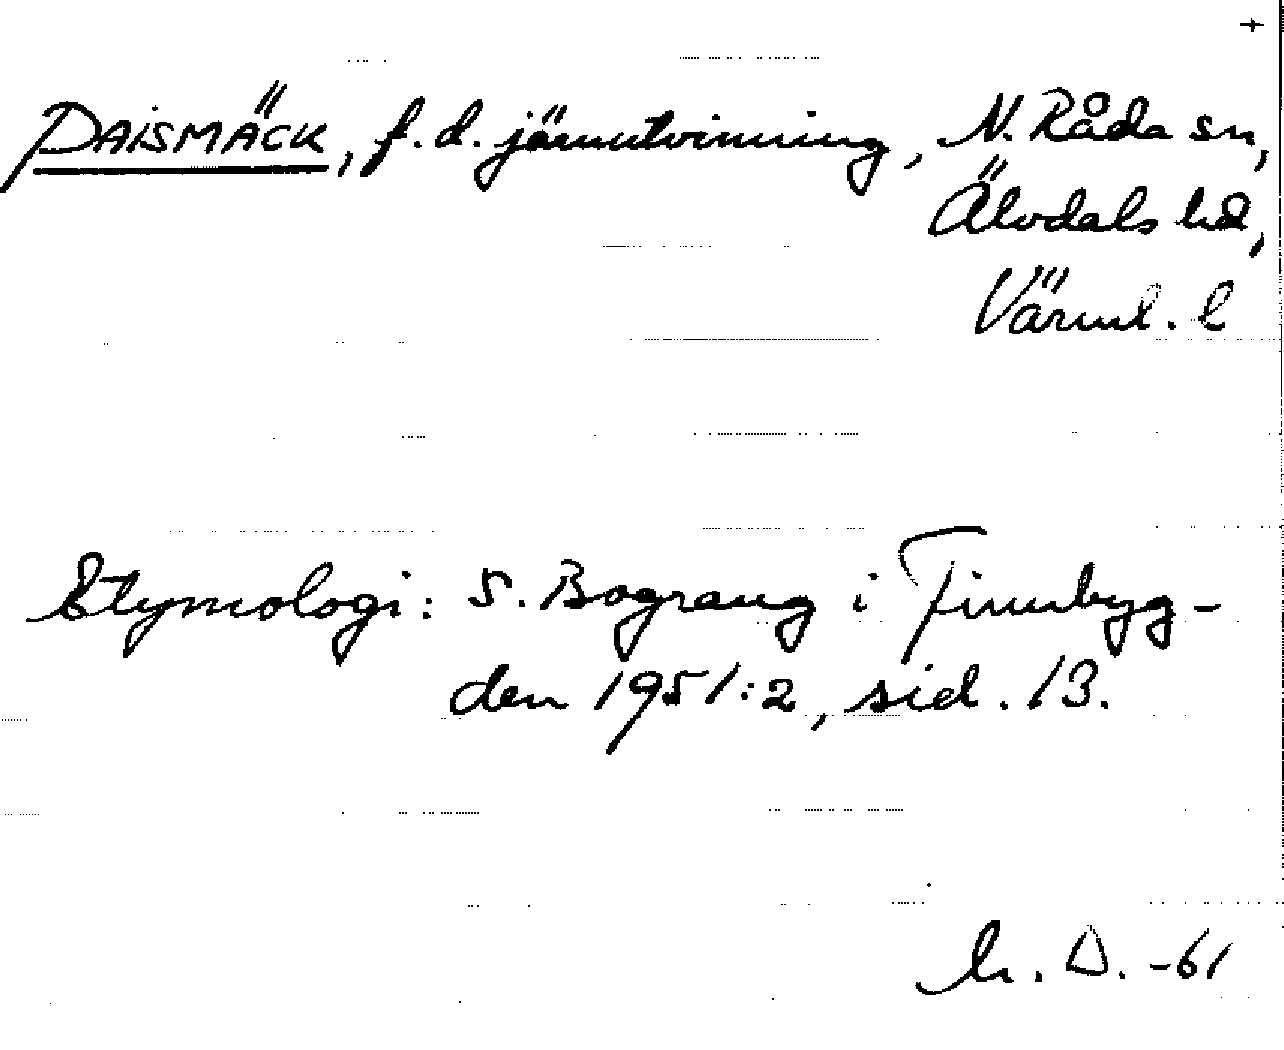 +
PAISMÄCK, f.d. järnutvinning, N. Råda sn,
Älvdals hd,
Värml. l
Etymologi: S. Bograng i Finnbyg-
den 1951:2, sid. 13.
D. -61